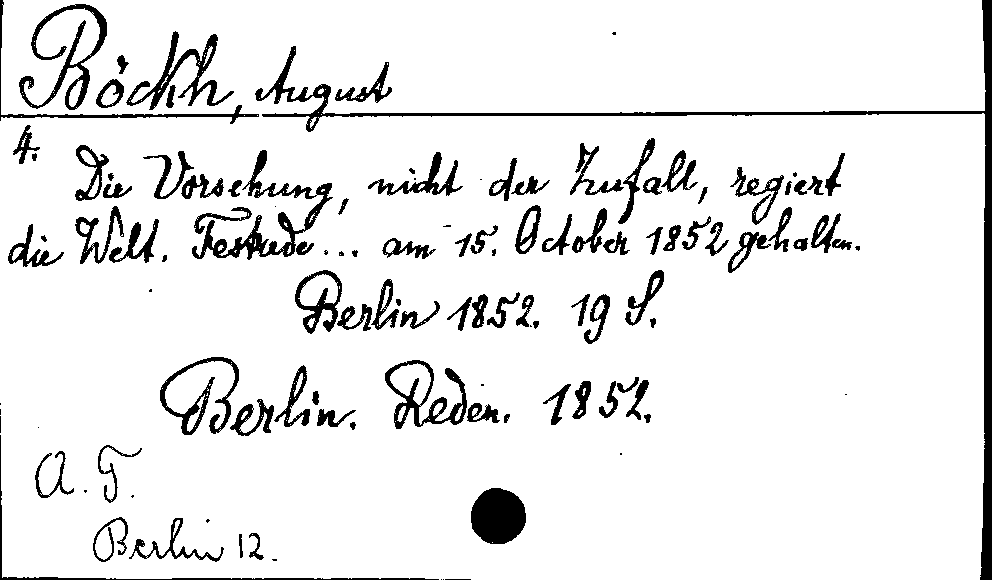 Böckh, August
4.
Die Vorsehung, nicht der Zufall, regiert
die Welt. Festrede ... am 15. October 1852 gehalten.
Berlin 1852. 19 S.
Berlin. Reden. 1852.
A. T.
Berlin 12.